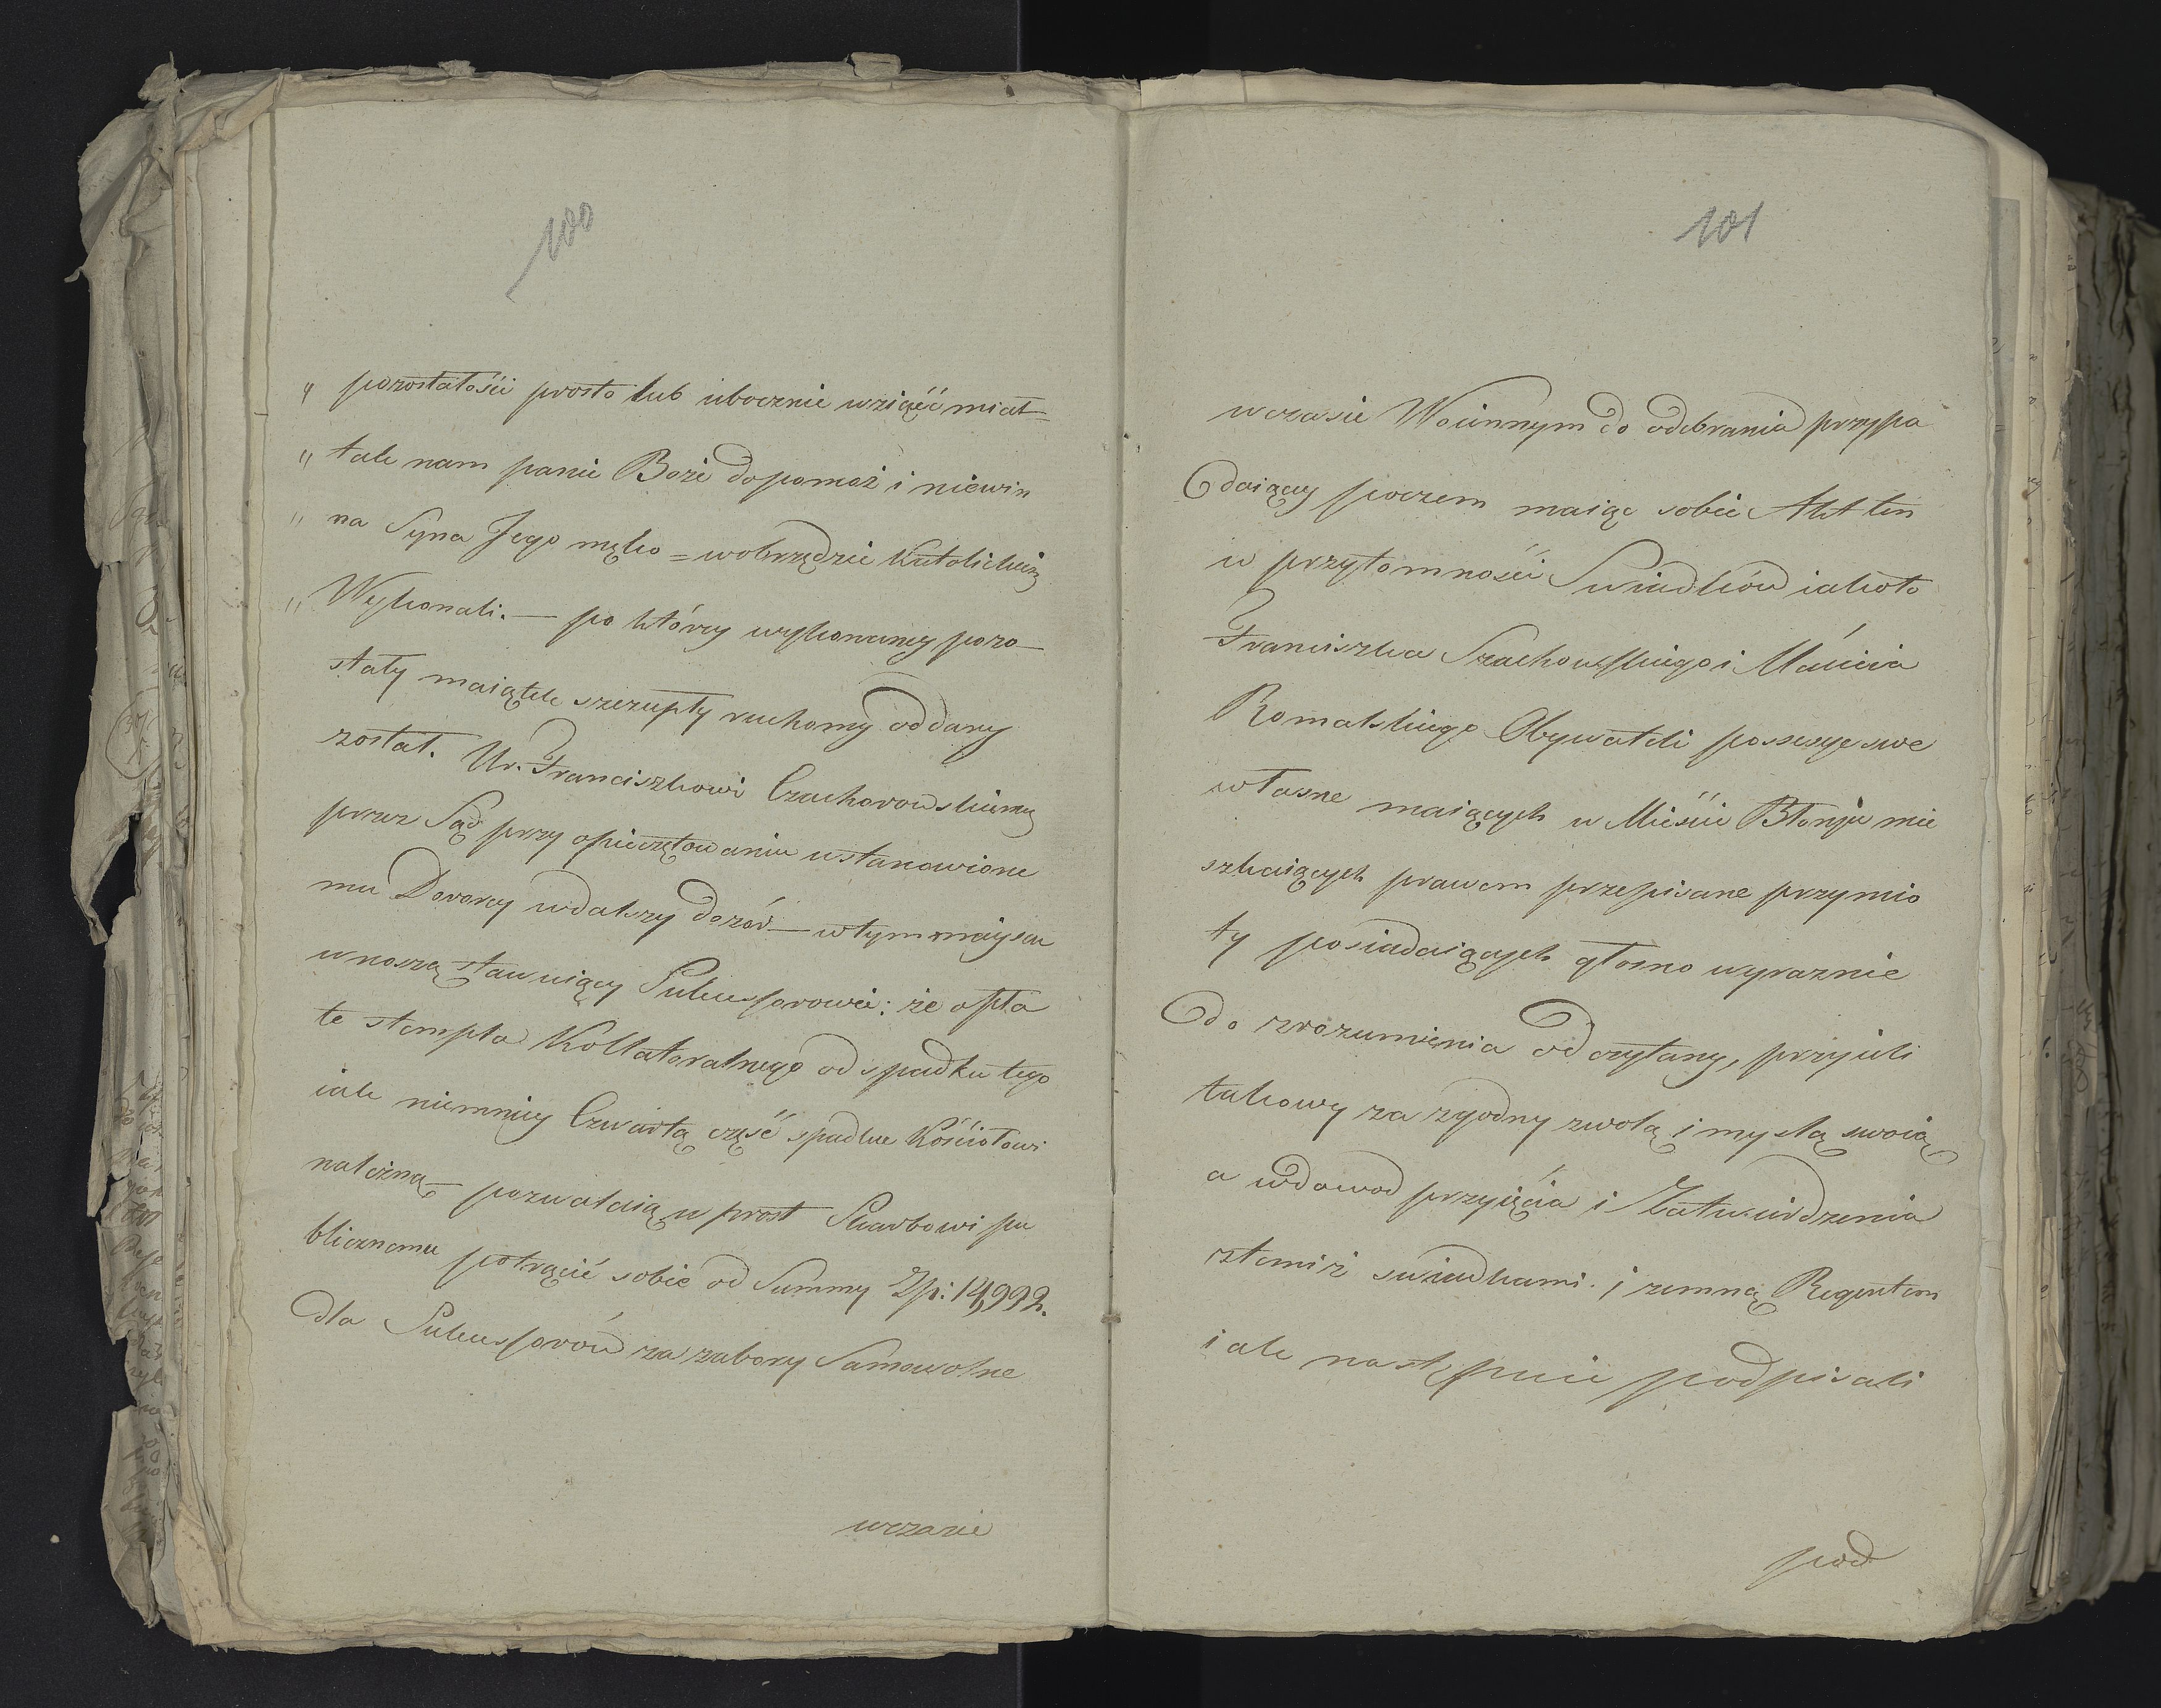 100
„ pozostałości prosto lub ubocznie wziąść miał=
„ tak nam panie Boże dopomoż i niewin
„ na Syna Jego męko = wobrządzie Katolickim
„ Wykonali. — po którey wykonaney pozo—
stały maiątek szczupły ruchomy oddany
został. Ur. Franciszkowi Czachorowskiemu
przez Sąd przy opieczętowaniu ustanowione
mu Dozorcy wdalszy dozór — wtym mieyscu
wnoszą stawaiący Sukcessorowie: że opła
te stempla Kollateralnego od spadku tego
iak niemniey Czwartą część spadku Kościołowi
należną — pozwalaią w prost Skarbowi pu
blicznemu potrącić sobie od Summy Zp: 14,999.
dla Sukcessorów za zabory Samowolne
wczasie
101
wczasie Woiennym do odebrania przypa
daiącey poczem maiąc sobie Akt ten
w przytomności Swiadków iakoto
Franciszka Szachowskiego i Macieia
Romalskiego Obywateli possesye swe
własne maiących w Mieście Błoniu mie
szkaiących prawem przepisane przymio
ty posiadaiących głosno wyraznie
do zrozumienia odczytany, przyieli
takowy za zgodny zwolą i myslą swoią
a wdowod przyięcia i Zatwierdzenia
ztemiż swiadkami i zemną Regentem
iak następuie podpisali
pod